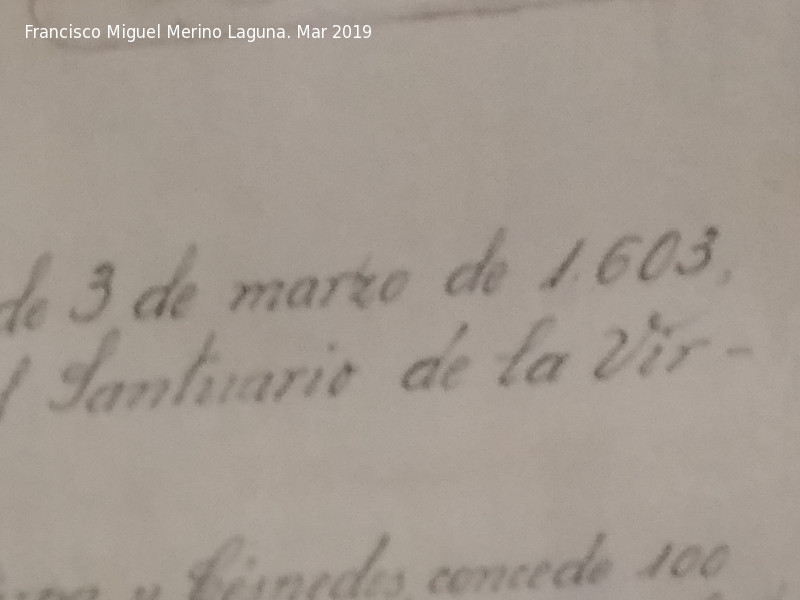 Francisco Miguel Merino Laguna. Mar 2019
de 3 de marzo de 1.603,
l Santuario de la Vir-
y Céspedes, concede 100